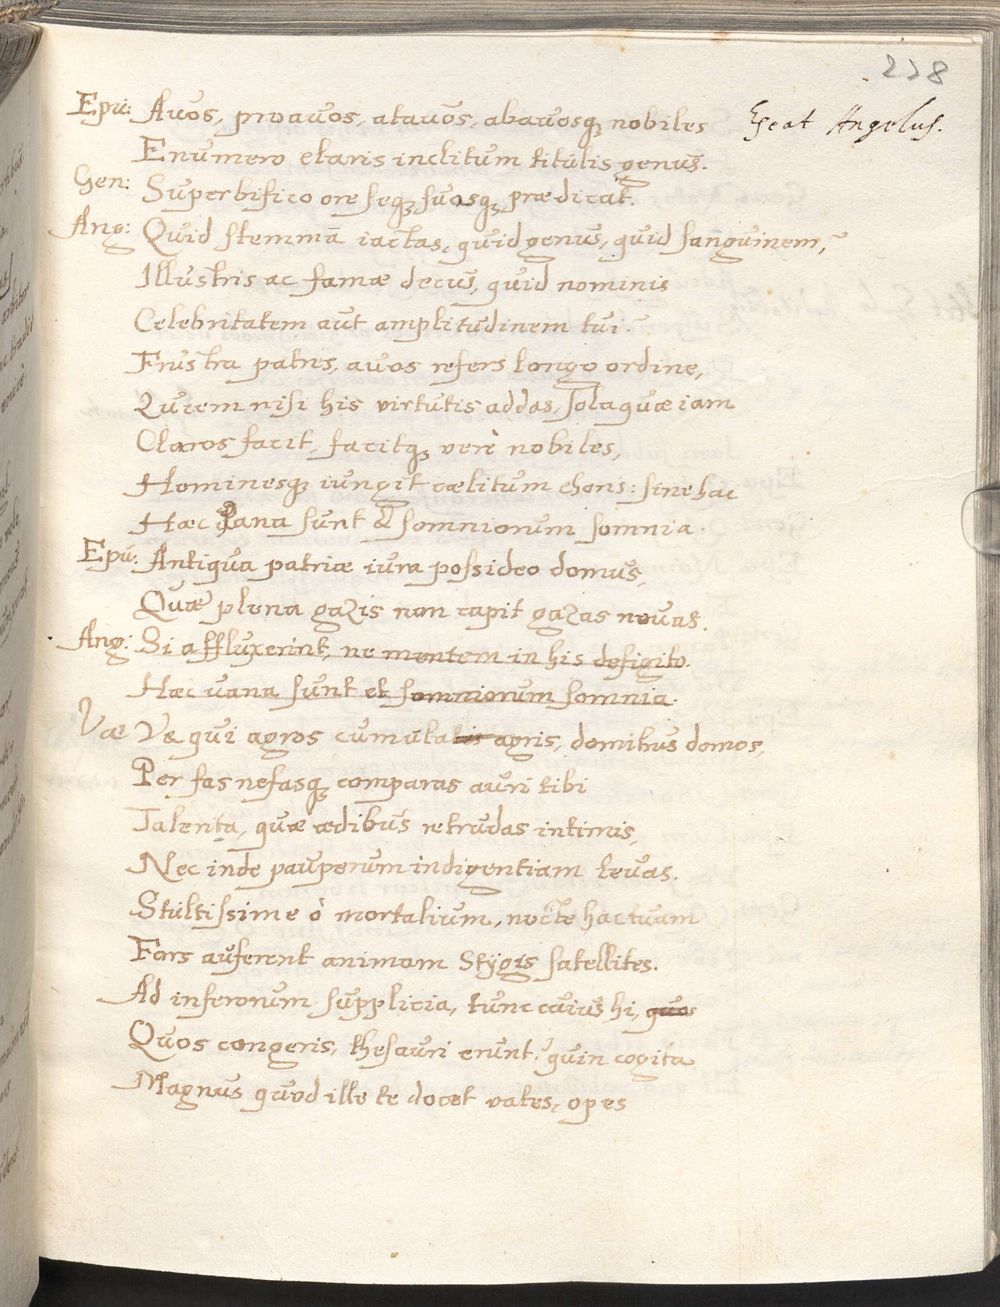 228
Epu: Auos, proauos, atauos, abauosq; nobiles Exeat Angelus.
Enumero claris inclitum titulis genus.
Gen: Superbifico ore seq; suosq; prædicat.
Ang: Quid stemmā iactas, quid genus, quid sanguinem,
Illustris ac famæ decus, quid nominis
Celebritatem aut amplitudinem tui?
Frustra patres, auos refers longo ordine,
Quiem nisi his virtutis addas, sola quæ iam
Claros facit, facitq; verè nobiles,
Hominesq; iungit cælitum choris: sine hac
Hæc uana sunt & somniorum somnia.
Epu: Antiqua patriæ iura possideo domus,
Quæ plena gazis non capit gazas nouas.
Ang: Si affluxerint, ne mentem in his defigito.
Hæc uana sunt et somniorum somnia.
Væ Væ qui agros cumulas agris, domibus domos,
Per fas nefasq; comparas auri tibi
Talenta, quæ ædibus retrudas intimis,
Nec inde pauperum indigentiam leuas.
Stultissime ò mortalium, nocte hac tuam
Fors auferent animam Stygis satellites.
Ad inferorum supplicia, tunc cuius hi,
Quos congeris, thesauri erunt? quin cogita
Magnus quod ille te docet vates, opes